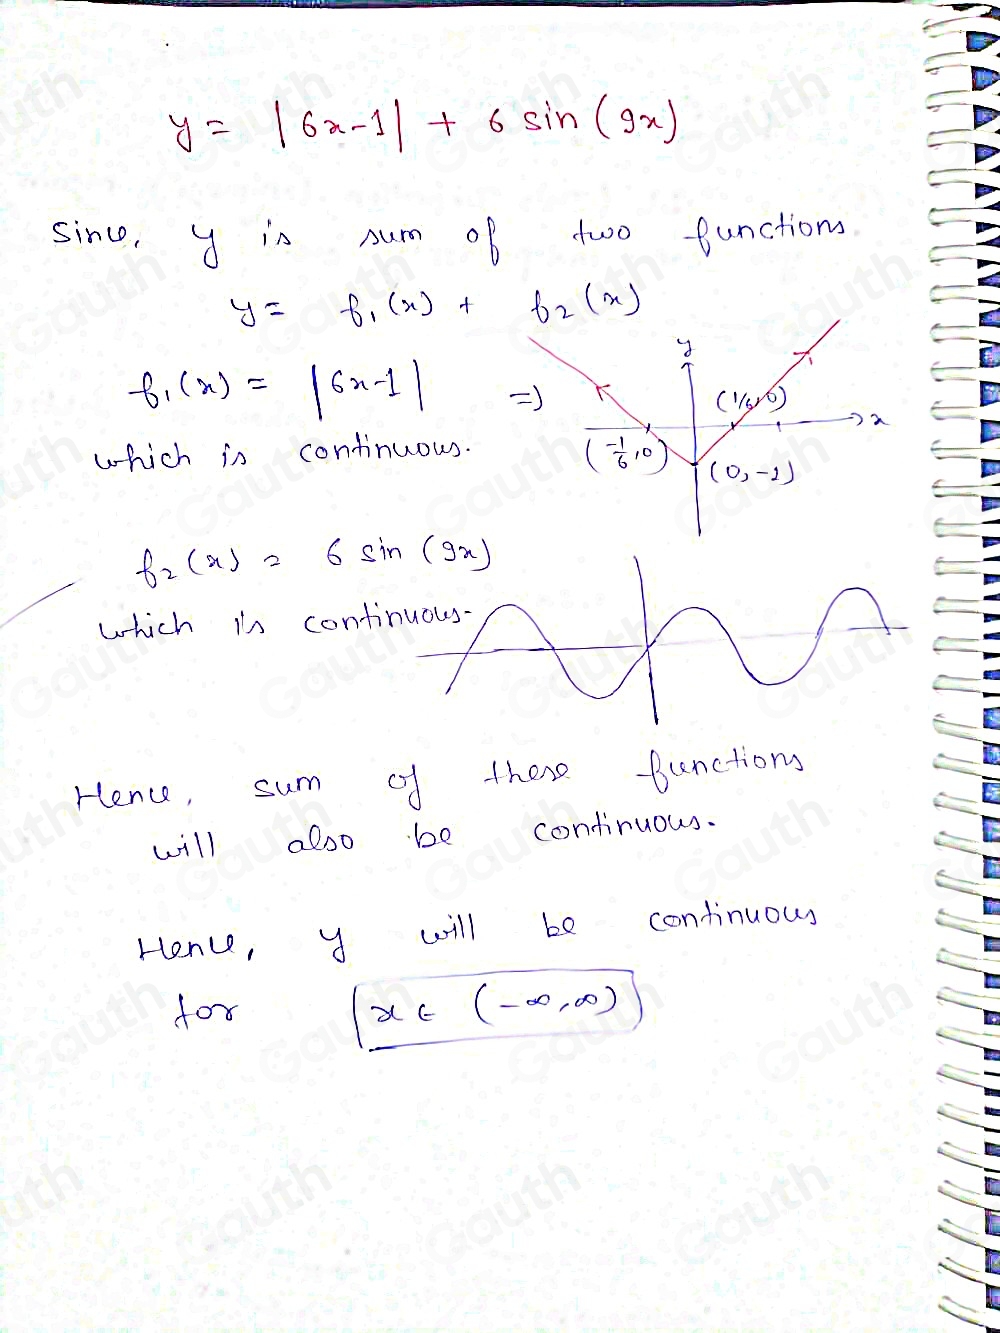 y = |6x-1| + 6 sin (9x)
Since, y is sum of two functions.
y = f₁(x) + f₂(x)
f₁(x) = |6x-1| =>
which is continuous.
y
(1/6,0)
x
(-1/6,0)
(0,-1)
f₂(x) = 6 sin (9x)
which is continuous.
Hence, sum of these functions
will also be continuous.
Hence, y will be continuous
for x ∈ (-∞,∞)
Gauth